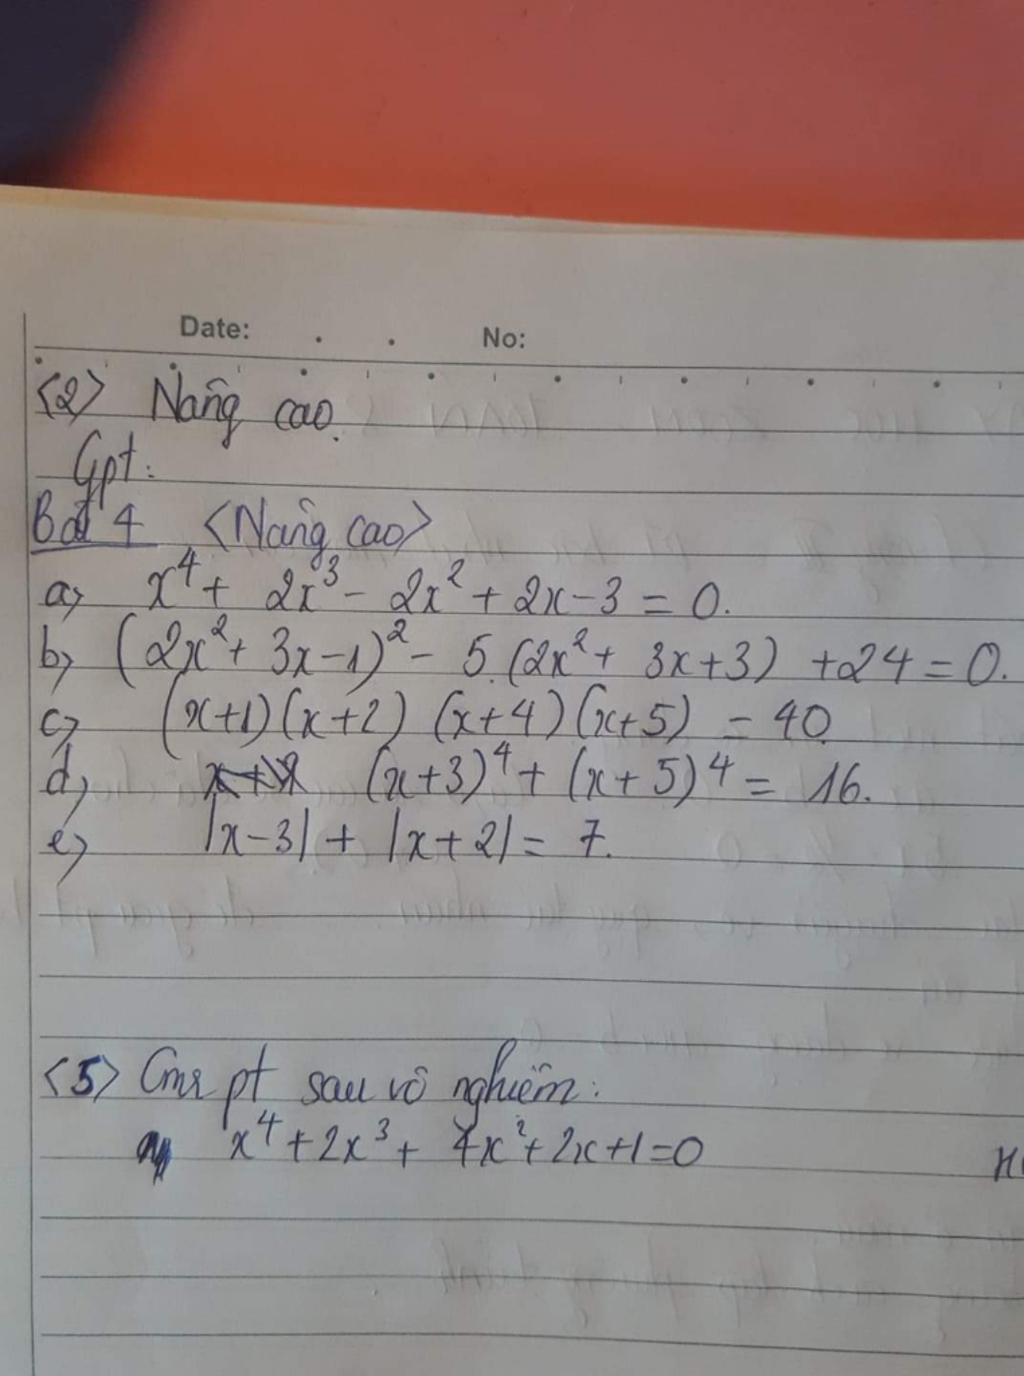 Date: . . No:
<2> Nâng cao.
Gpt:
Bài 4 <Nâng cao>
a) x⁴ + 2x³ - 2x² + 2x - 3 = 0.
b) (2x² + 3x - 1)² - 5.(2x² + 3x + 3) + 24 = 0.
c) (x+1)(x+2) (x+4)(x+5) = 40
d) (x+3)⁴ + (x+5)⁴ = 16.
e) |x-3| + |x+2| = 7.
<5> Cmr pt sau vô nghiệm:
x⁴ + 2x³ + 4x² + 2x + 1 = 0